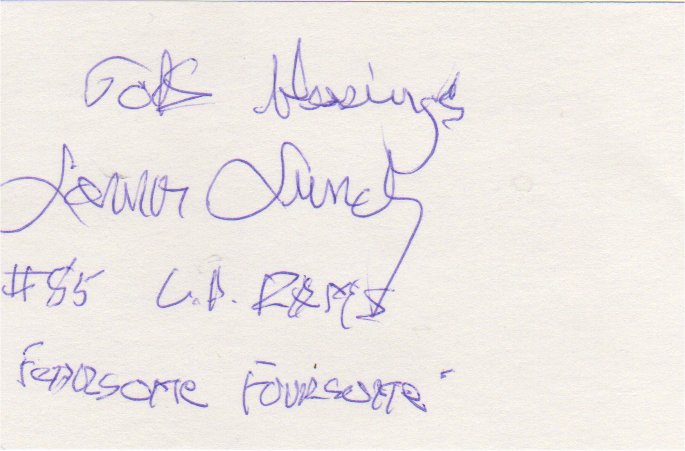 God's blessings
Lamar Lundy
#85 L.A. RAMS
Fearsome Foursome"